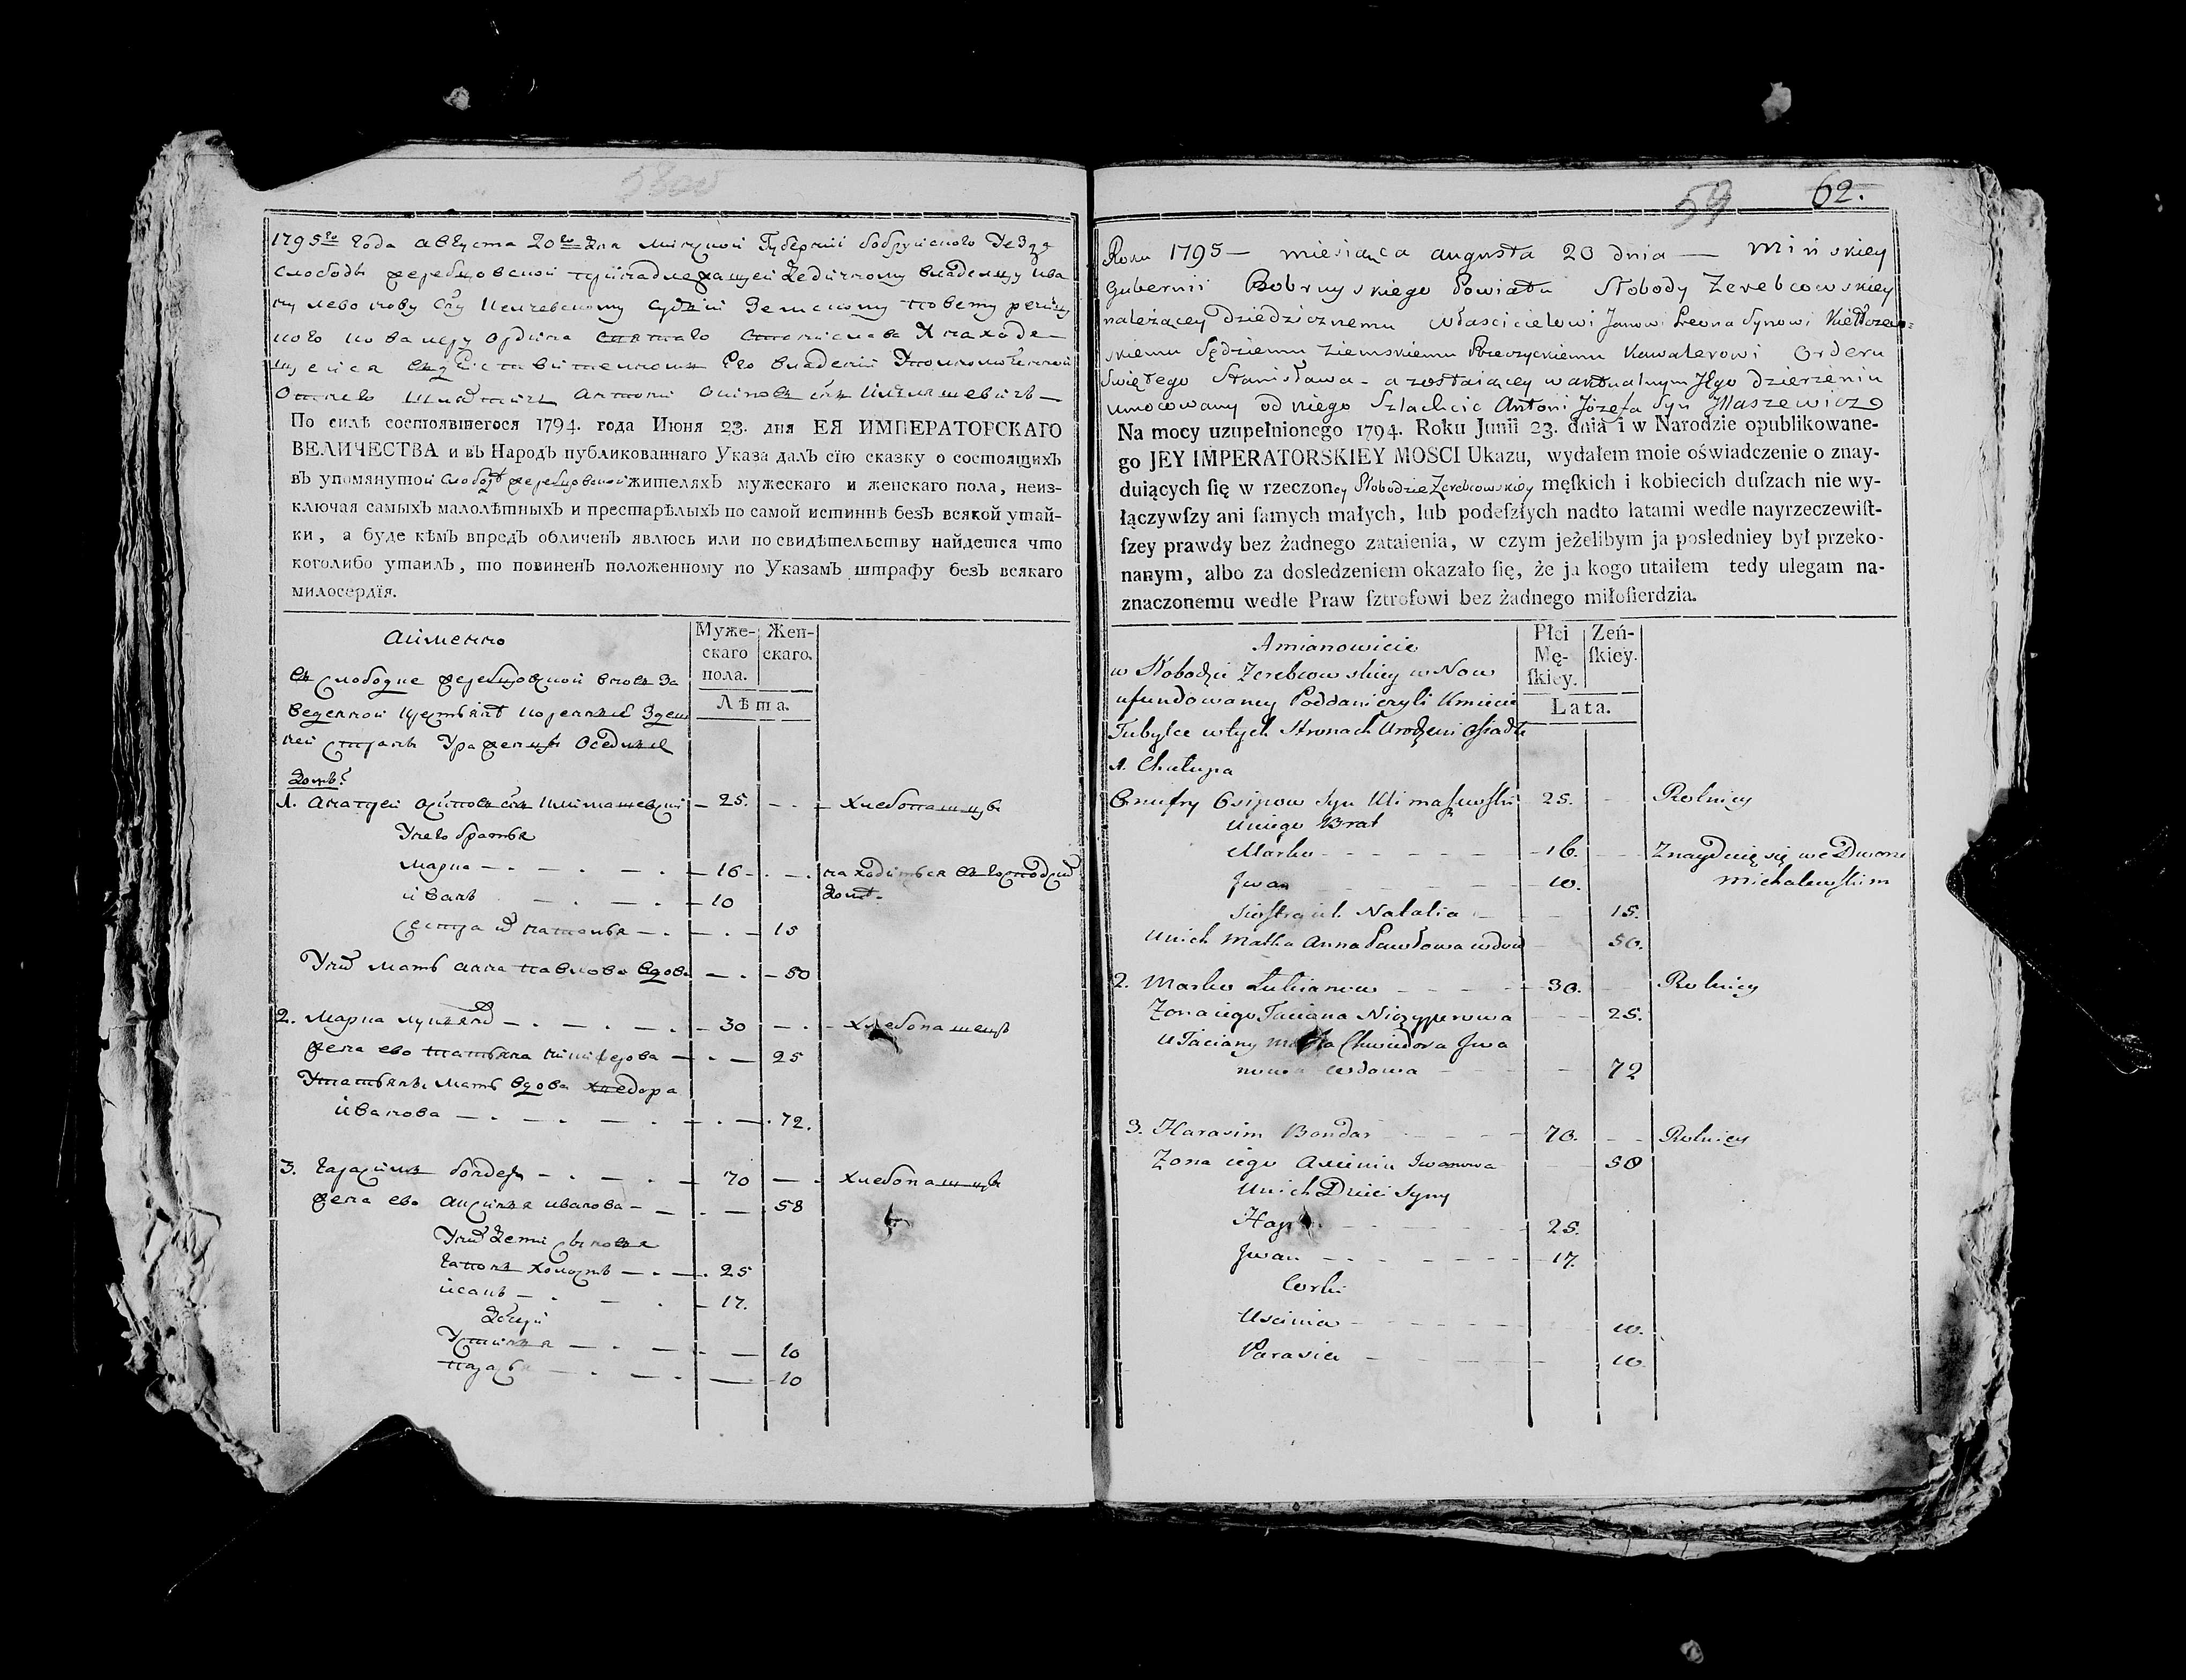 58об
1795го года августа 20го дня минской губернии бобруйского уезда
слободы жеребцовской принадлежащей дедичному владельцу ива
ну
сыну судии земскому повету речиц
кого кавалеру ордина святаго станислава а находе
щейся в действительном его владении уполномоченной
от него шляхтич антони осипов сын
По силѣ состоявшегося 1794. года Июня 23. дня ЕЯ ИМПЕРАТОРСКАГО
ВЕЛИЧЕСТВА и въ Народъ публикованнаго Указа далъ сїю сказку о состоящихъ
въ упомянутой слободе жеребцовской жителяхъ мужескаго и женскаго пола, неиз-
ключая самыхъ малолѣтныхъ и престарѣлыхъ по самой истиннѣ безъ всякой утай-
ки, а буде кѣмъ впредъ обличенъ явлюсь или по свидѣтельству найдется что
коголибо утаилъ, то повиненъ положенному по Указамъ штрафу безъ всякаго
милосердїя.
аименно
Муже-
скаго
пола.
Жен-
скаго.
Лѣта.
в слободце жеребцовской вновь за
веденной крестьяне коренные здеш
ней страны уроженцы оседлые
домы
1. осипов сын — 25. — хлебопашцы
у него братья
марка — 16 — находиться в господском
иван — 10 доме.
сестра их наталья — 15
у них мать анна павлова вдова — 50
2. марка лукьянов — 30 — хлебопашец
жена ево татьяна никифорова — 25
у татьяны мать вдова хведора
иванова — 72.
3. гарасим бондар — 70 — хлебопашцы
жена ево аксинья иванова — 58
у них дети сыновья
гапон холост — 25
иван — 17.
дочери
устинья — 10
парасья — 10
59 62.
Roku 1795 — miesiąca augusta 20 dnia — Mińskiey
Gubernii Bobruyskiego Powiatu Słobody Zerebcowskiey
należącey Dziedzicznemu właścicielowi Janowi Leona Synowi
skiemu Sędziemu Ziemskiemu Rzeczyckiemu Kawalerowi Orderu
Swiętego Stanisława - a zostaiącey w aktualnym Jego dzierżeniu
umocowany od niego Szlachcic Antoni Józefa Syn Jllaszewicz
Na mocy uzupełnionego 1794. Roku Junii 23. dnia i w Narodzie opublikowane-
go JEY IMPERATORSKIEY MOSCI Ukazu, wydałem moie oświadczenie o znay-
duiących ſię w rzeczoney Słobodzie Zerebcowskiey męſkich i kobiecich duſzach nie wy-
łączywſzy ani ſamych małych, lub podeſzłych nadto latami wedle nayrzeczewiſt-
ſzey prawdy bez żadnego zataienia, w czym jeżelibym ja posledniey był przeko-
nanym, albo za dosledzeniem okazało ſię, że ja kogo utaiłem tedy ulegam na-
znaczonemu wedle Praw ſztrofowi bez żadnego miłoſierdzia.
Amianowicie
Płci
Mę-
ſkiey.
Zeń-
ſkiey.
Lata.
w Słobodzie Zerebcowskiey w Now
ufundowaney Poddani czyli Kmiecie
Tubylce w tych Stronach Urodzeni Osiadłi
1. Chałupa
Onufry Osipow Syn Klimaszewski 25. — Rolnicy
u niego Brat
Marko — 16. — Znayduie się we Dworze
Jwan — 10. Michalewskim
Siostra ich Natalia — 15.
U nich Matka Anna Pawłowa wdowa 50.
2. Marko Łukianow — 30. — Rolnicy
Zona iego Taciana Niczyperowa — 25.
U Taciany Matka Chwiedora Jwa
nowa wdowa — 72
3. Harasim Bondar — 70. — Rolnicy
Zona iego Axienia Jwanowa — 58
U nich Dzieci Syny
25.
Jwan — 17.
Corki
Uscinia — 10.
Parasia — 10.